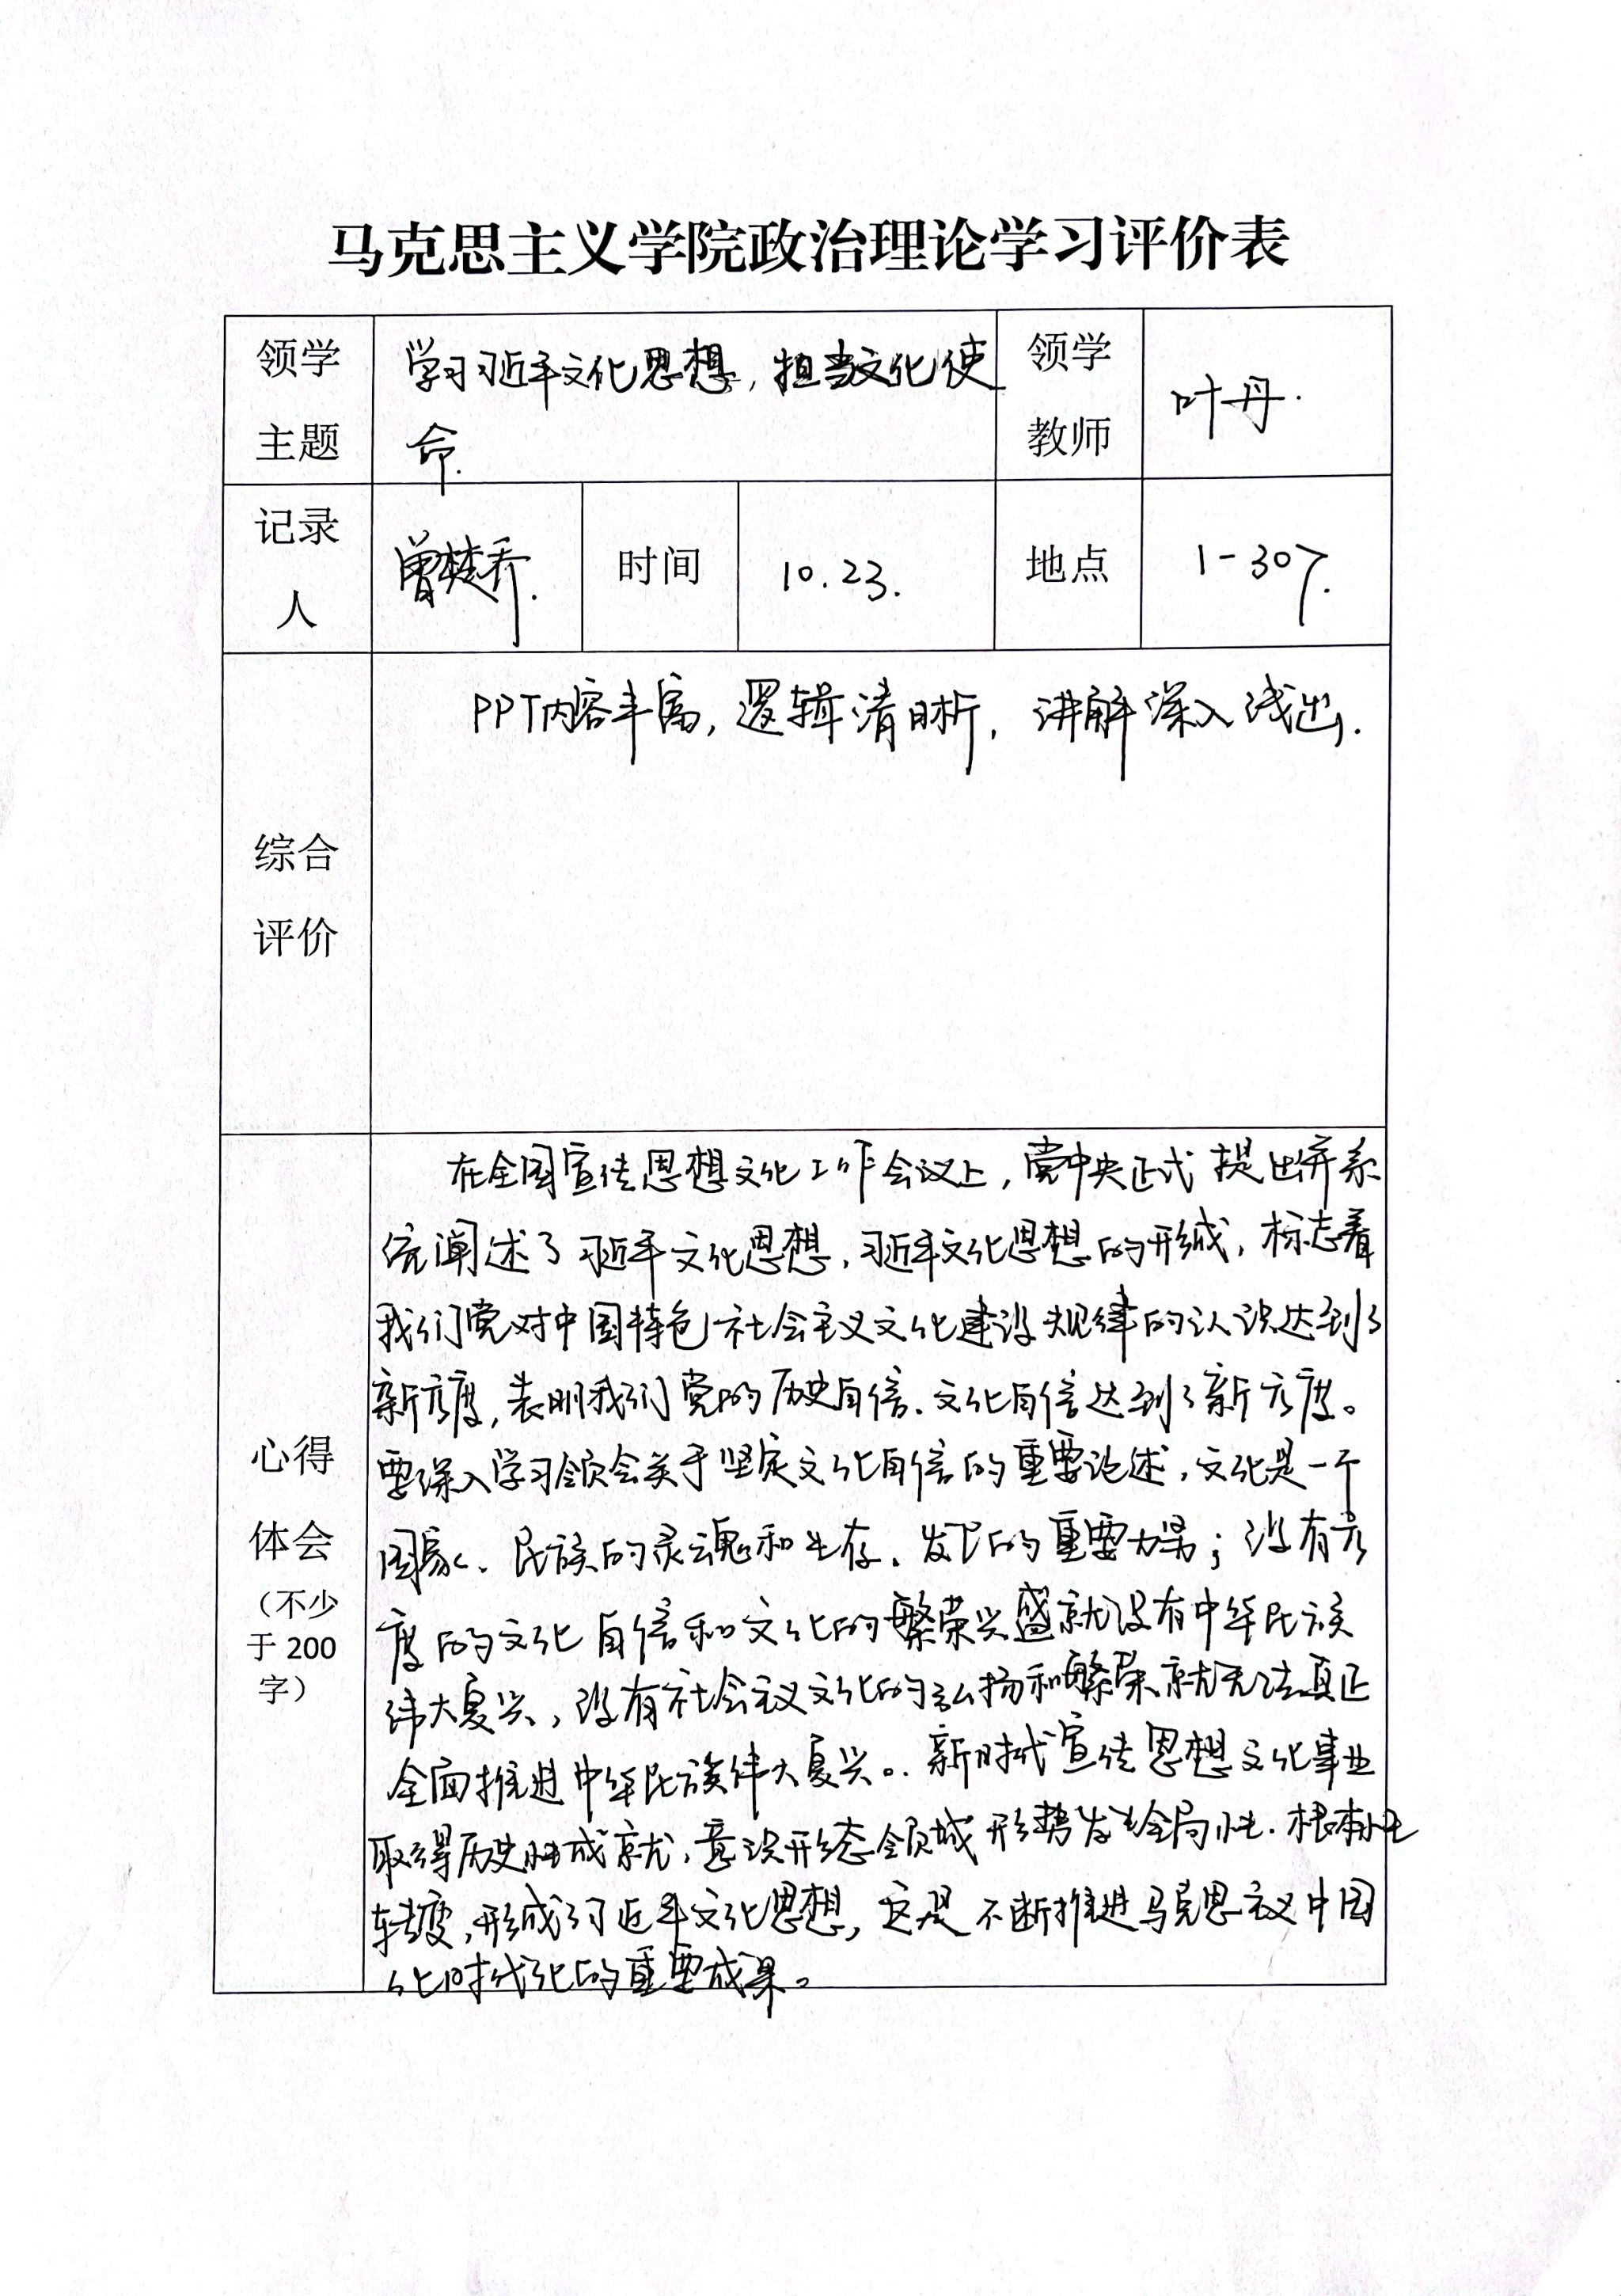 马克思主义学院政治理论学习评价表
领学主题
学习习近平文化思想，担当文化使
命.
领学教师
叶丹.
记录人
曾楚乔.
时间
10.23.
地点
1-307.
综合评价
PPT内容丰富，逻辑清晰，讲解深入浅出.
心得体会（不少于200字）
在全国宣传思想文化工作会议上，党中央正式提出并系
统阐述了习近平文化思想，习近平文化思想的形成，标志着
我们党对中国特色社会主义文化建设规律的认识达到了
新高度，表明我们党的历史自信、文化自信达到了新高度。
要深入学习领会关于坚定文化自信的重要论述，文化是一个
国家、民族的灵魂和生存、发展的重要力量；没有高
度的文化自信和文化的繁荣兴盛就没有中华民族
伟大复兴，没有社会主义文化的弘扬和繁荣就无法真正
全面推进中华民族伟大复兴。新时代宣传思想文化事业
取得历史性成就，意识形态领域形势发生全局性、根本性
转变，形成了习近平文化思想，这是不断推进马克思主义中国
化时代化的重要成果。